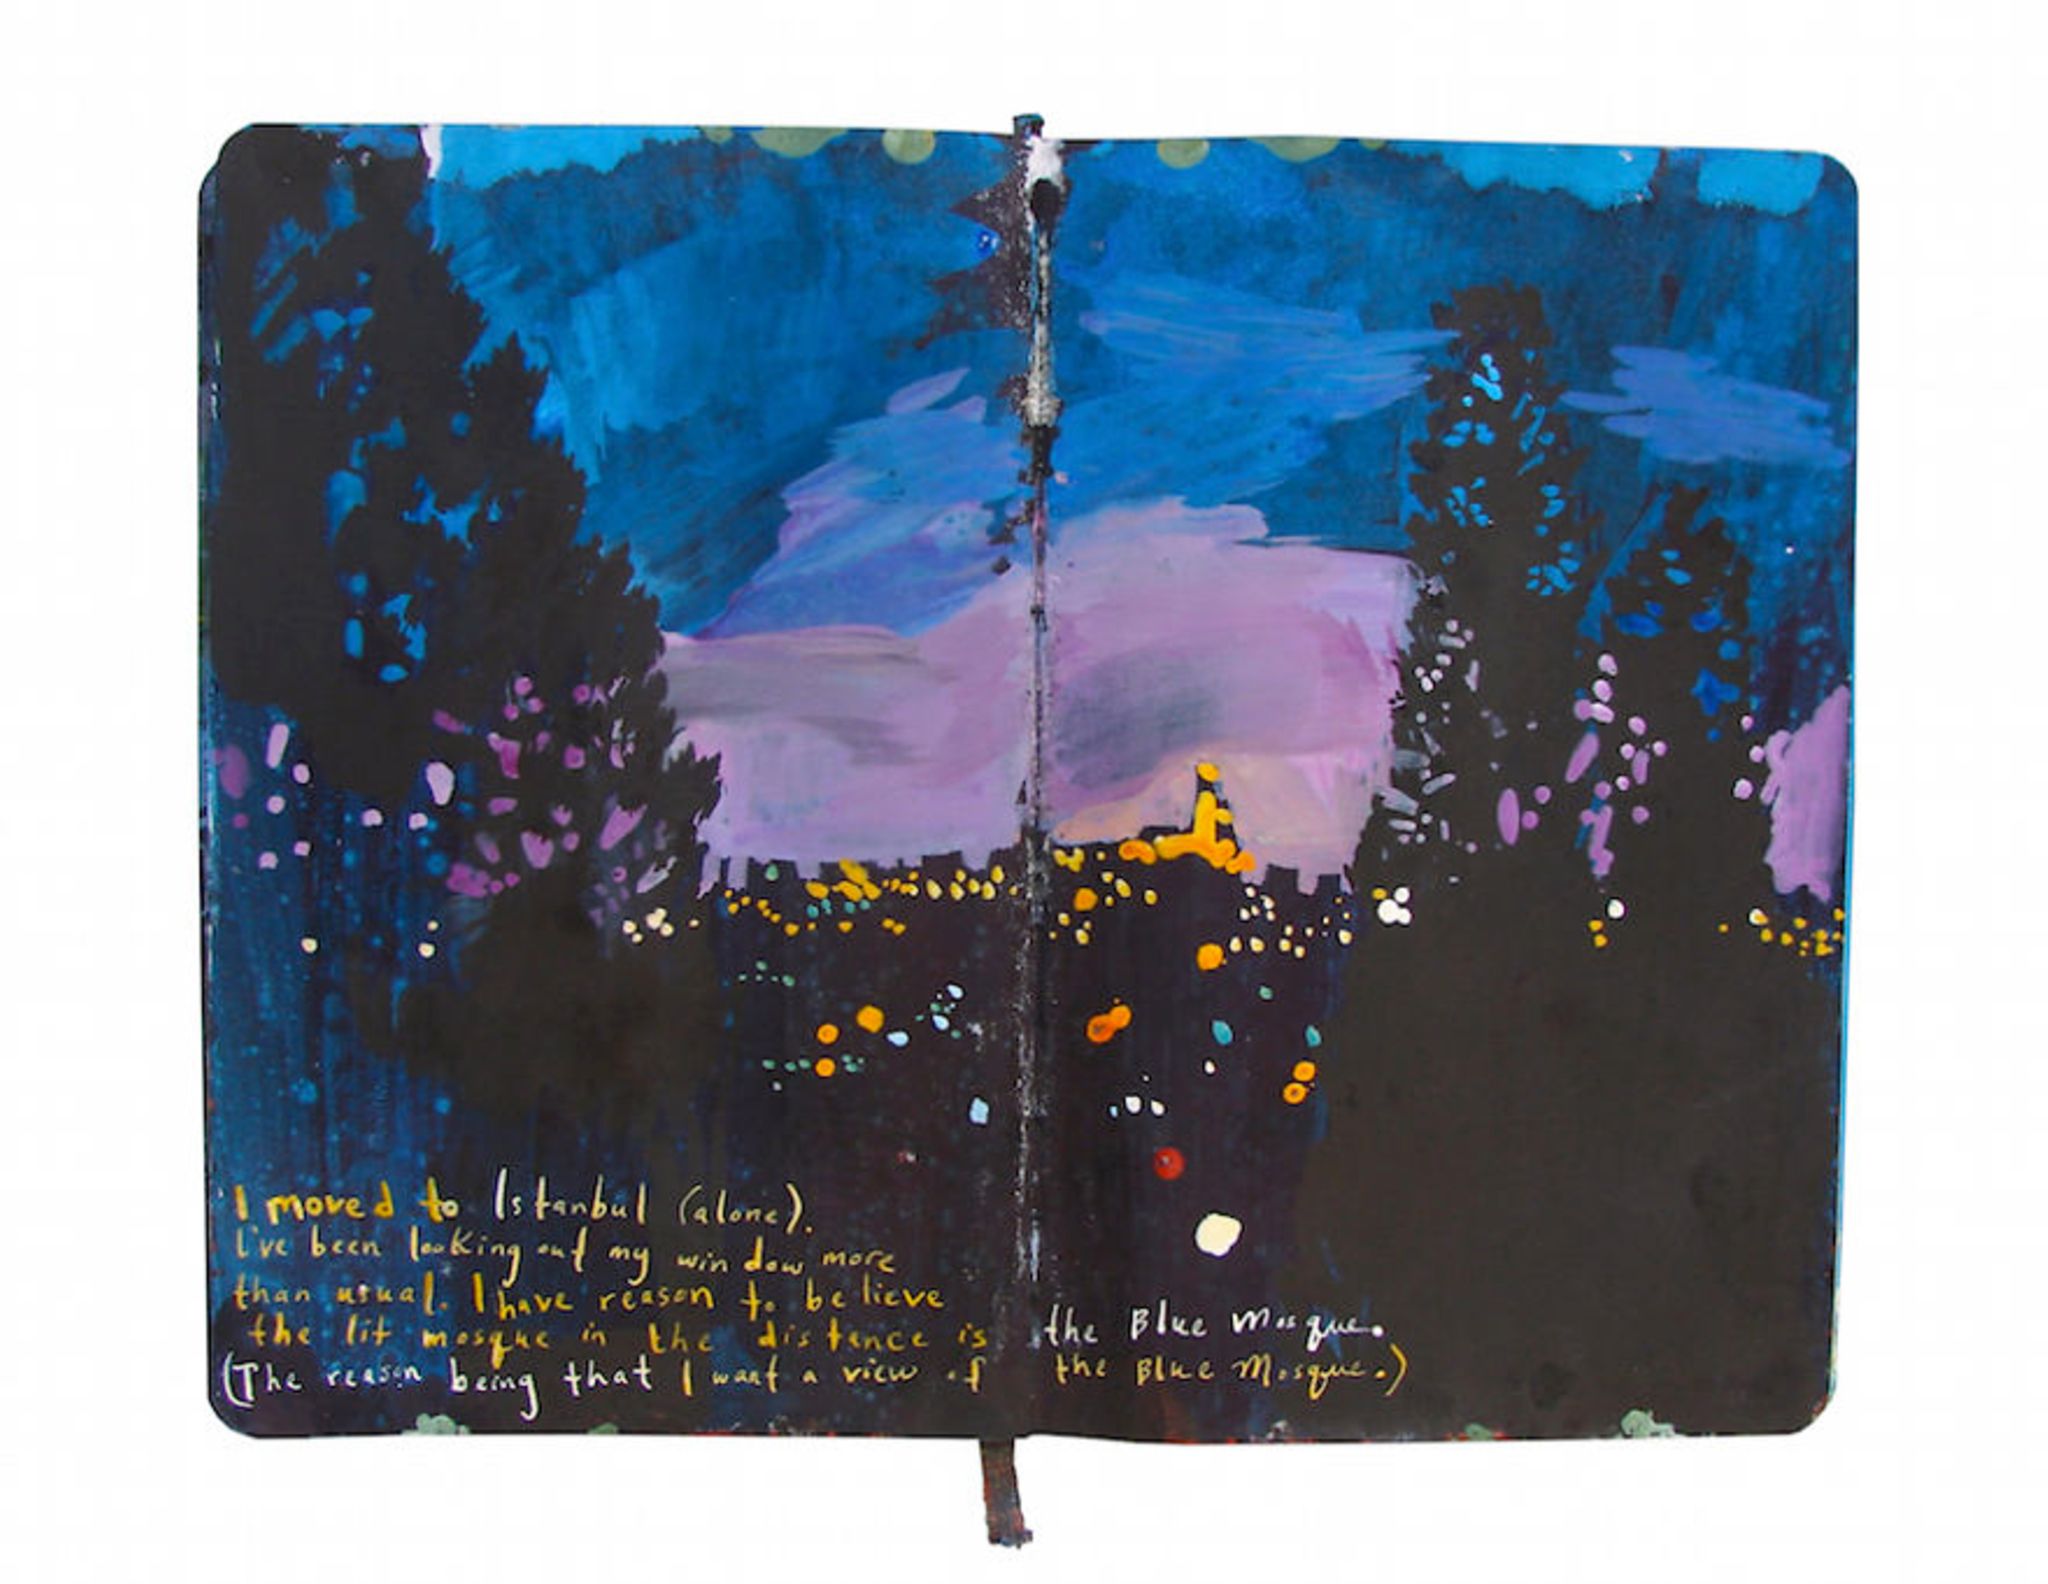 I moved to Istanbul (alone).
I've been looking out my window more
than usual. I have reason to believe
the lit mosque in the distance is the Blue Mosque.
(The reason being that I want a view of the Blue Mosque.)